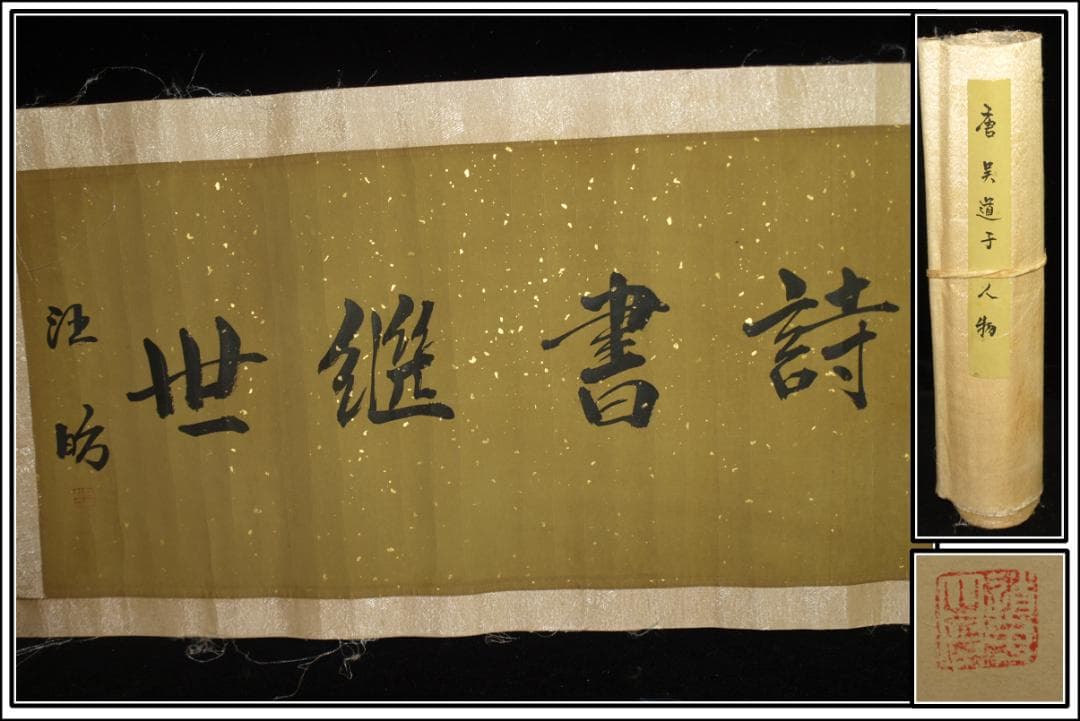 詩書繼世
汪昉
唐吴道子人物